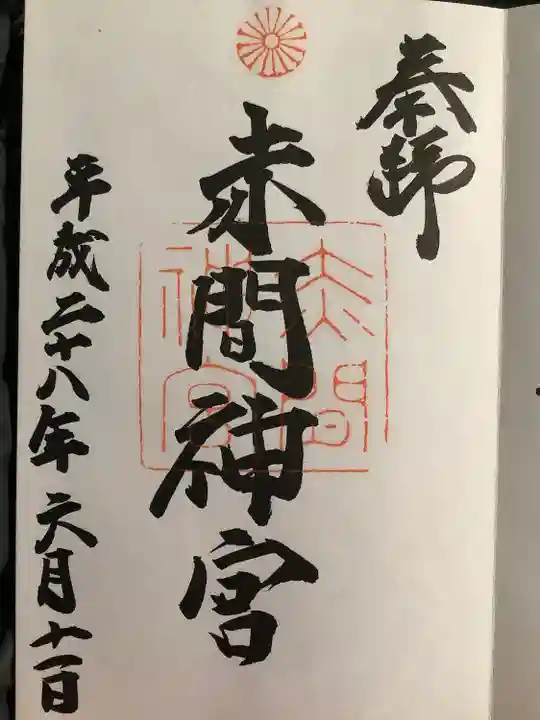 奉拜
赤間神宮
平成二十八年六月十一日
赤間
神宮